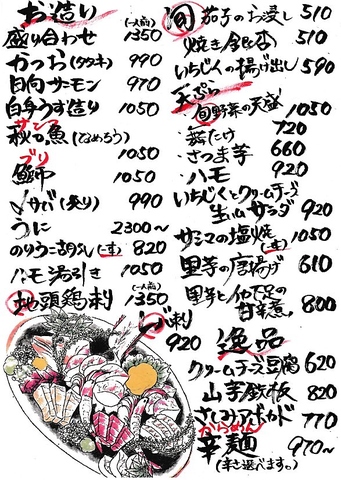 お造り
盛り合わせ (一人前) 1350
かつお(タタキ) 990
日向サーモン 970
白身うす造り 1050
サンマ
秋刀魚(なめろう)
ブリ 1050
鰤 1050
〆サバ(炙り) 990
うに 2300～
のりうに胡瓜(一本) 820
ハモ湯引き 1050
地頭鶏刺 (一人前) 1350
レバ刺 920
旬 茄子のお浸し 510
焼き銀杏 510
いちじくの揚げ出し 590
天ぷら
・旬野菜の天盛 1050
・舞たけ 720
・さつま芋 660
・ハモ 920
いちじくとクリームチーズ
生ハムサラダ 920
サンマの塩焼(一本) 1050
里芋の唐揚げ 610
里芋と
甘辛煮。 800
逸品
クリームチーズ豆腐 620
山芋鉄板 820
さしみアボカド 770
からめん
辛麺 970～
(辛さ選べます。)